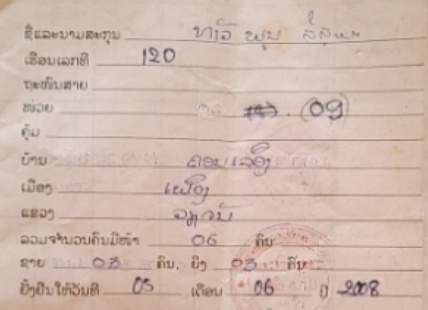 ຊື່ແລະນາມສະກຸນ ທ້າວ ພູນ
ເຮືອນເລກທີ 120
ຖະໜົນສາຍ
ໜ່ວຍ 06 (09)
ຄຸ້ມ
ບ້ານ
ເມືອງ ເຟືອງ
ແຂວງ ວຽງຈັນ
ລວມຈຳນວນຄົນມີໜ້າ 06 ຄົນ
ຊາຍ 03 ຄົນ, ຍິງ 03 ຄົນ
ຍັ້ງຢືນໃຫ້ວັນທີ 05 ເດືອນ 06 ປີ 2008